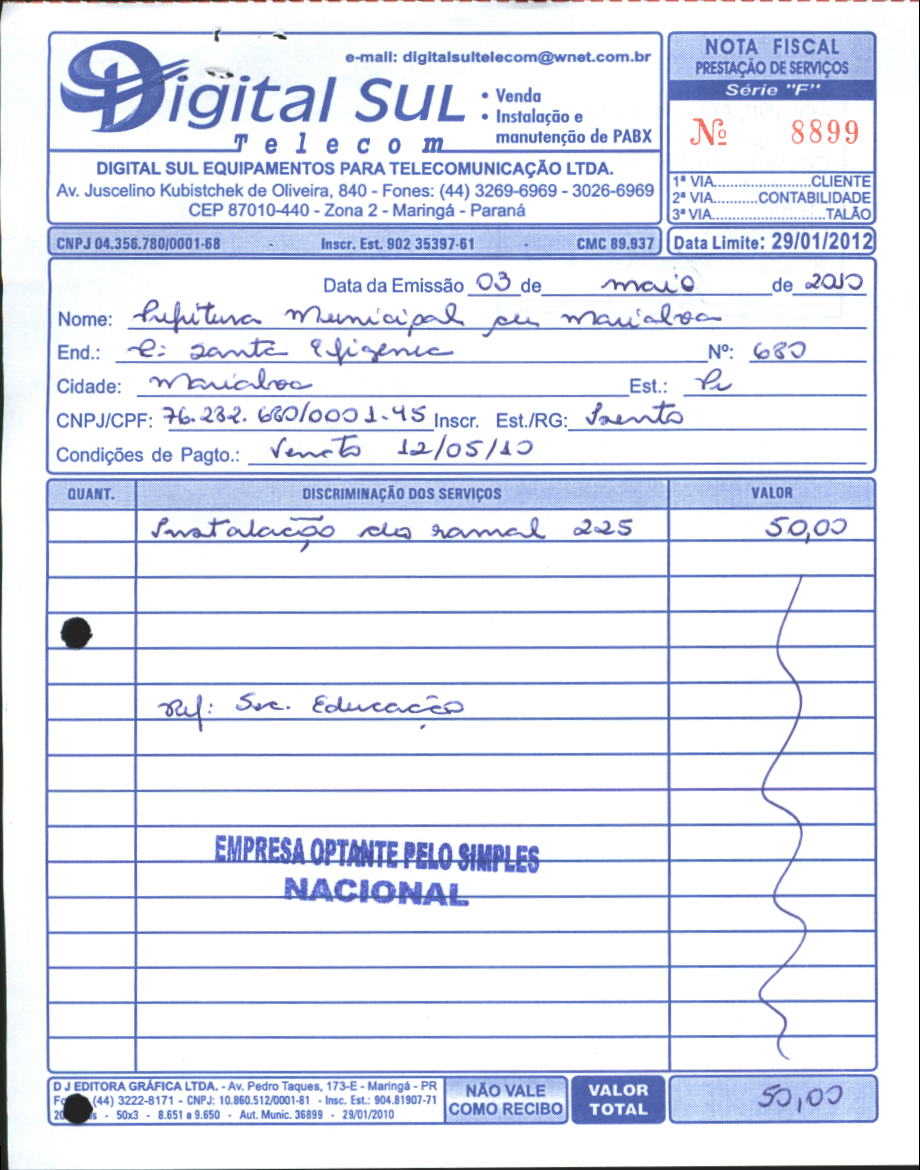 e-mail: digitalsultelecom@wnet.com.br
Digital Sul
Telecom
• Venda
• Instalação e
manutenção de PABX
DIGITAL SUL EQUIPAMENTOS PARA TELECOMUNICAÇÃO LTDA.
Av. Juscelino Kubistchek de Oliveira, 840 - Fones: (44) 3269-6969 - 3026-6969
CEP 87010-440 - Zona 2 - Maringá - Paraná
NOTA FISCAL
PRESTAÇÃO DE SERVIÇOS
Série "F"
Nº 8899
1ª VIA......................CLIENTE
2ª VIA..........CONTABILIDADE
3ª VIA.........................TALÃO
CNPJ 04.356.780/0001-68 - Inscr. Est. 902 35397-61 - CMC 89.937
Data Limite: 29/01/2012
Data da Emissão 03 de maio de 2010
Nome: Prefitura Municipal de Marialva
End.: R: Santa Efigenia Nº: 680
Cidade: Marialva Est.: Pr
CNPJ/CPF: 76.282.680/0001-45 Inscr. Est./RG: Isento
Condições de Pagto.: Vencto 12/05/10
QUANT. DISCRIMINAÇÃO DOS SERVIÇOS VALOR
Instalação do ramal 225 50,00
Ref: Sec. Educação
EMPRESA OPTANTE PELO SIMPLES
NACIONAL
D J EDITORA GRÁFICA LTDA. - Av. Pedro Taques, 173-E - Maringá - PR
(44) 3222-8171 - CNPJ: 10.860.512/0001-81 - Insc. Est.: 904.81907-71
50x3 - 8.651 a 9.650 - Aut. Munic. 36899 - 29/01/2010
NÃO VALE
COMO RECIBO
VALOR
TOTAL
50,00